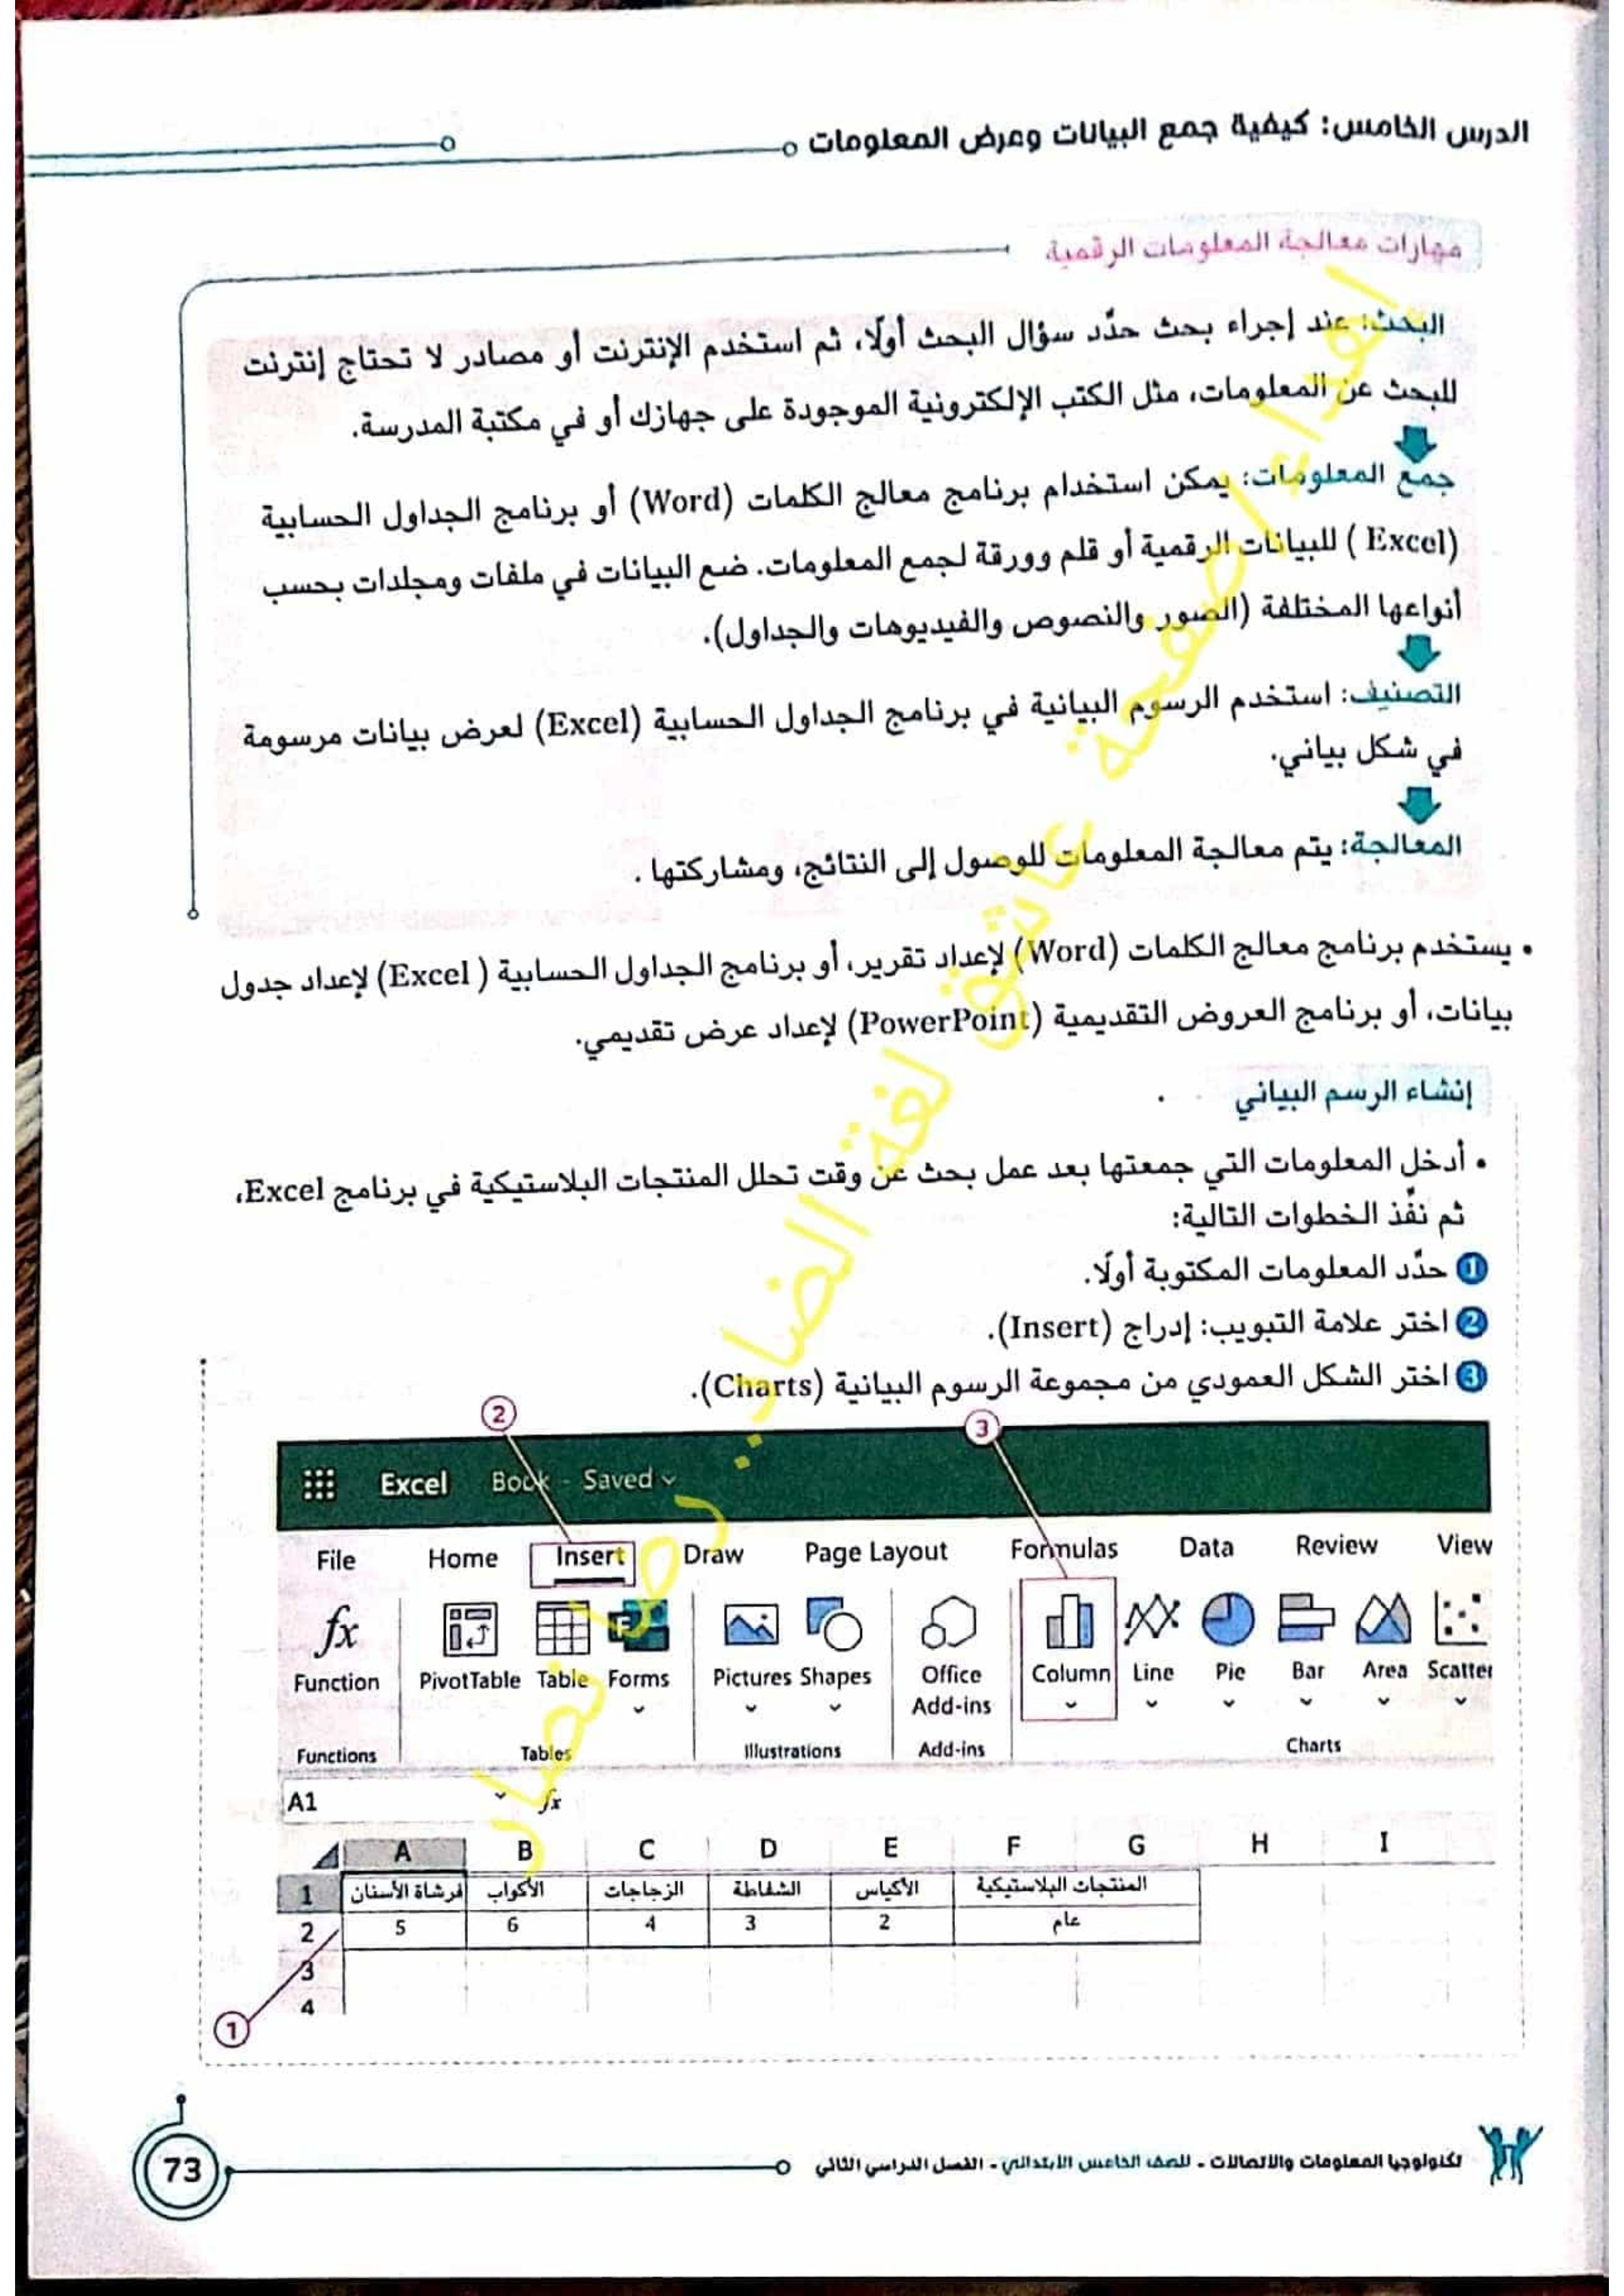 الدرس الخامس: كيفية جمع البيانات وعرض المعلومات
مهارات معالجة المعلومات الرقمية
البحث: عند إجراء بحث حدِّد سؤال البحث أولًا، ثم استخدم الإنترنت أو مصادر لا تحتاج إنترنت
للبحث عن المعلومات، مثل الكتب الإلكترونية الموجودة على جهازك أو في مكتبة المدرسة.
جمع المعلومات: يمكن استخدام برنامج معالج الكلمات (Word) أو برنامج الجداول الحسابية
(Excel ) للبيانات الرقمية أو قلم وورقة لجمع المعلومات. ضع البيانات في ملفات ومجلدات بحسب
أنواعها المختلفة (الصور والنصوص والفيديوهات والجداول).
التصنيف: استخدم الرسوم البيانية في برنامج الجداول الحسابية (Excel) لعرض بيانات مرسومة
في شكل بياني.
المعالجة: يتم معالجة المعلومات للوصول إلى النتائج، ومشاركتها .
• يستخدم برنامج معالج الكلمات (Word) لإعداد تقرير، أو برنامج الجداول الحسابية ( Excel) لإعداد جدول
بيانات، أو برنامج العروض التقديمية (PowerPoint) لإعداد عرض تقديمي.
إنشاء الرسم البياني
• أدخل المعلومات التي جمعتها بعد عمل بحث عن وقت تحلل المنتجات البلاستيكية في برنامج Excel،
ثم نفِّذ الخطوات التالية:
1 حدِّد المعلومات المكتوبة أولًا.
2 اختر علامة التبويب: إدراج (Insert).
3 اختر الشكل العمودي من مجموعة الرسوم البيانية (Charts).
2 3
Excel Book - Saved
File Home Insert Draw Page Layout Formulas Data Review View
fx F
Function PivotTable Table Forms Pictures Shapes Office Add-ins Column Line Pie Bar Area Scatter
Functions Tables Illustrations Add-ins Charts
A1 fx
A B C D E F G H I
1 فرشاة الأسنان الأكواب الزجاجات الشفاطة الأكياس المنتجات البلاستيكية
2 5 6 4 3 2 عام
3
4
1
تكنولوجيا المعلومات والاتصالات - للصف الخامس الابتدائي - الفصل الدراسي الثاني
73
إهداء لصفحة عاشق لغة الضاد.. رضا نصار